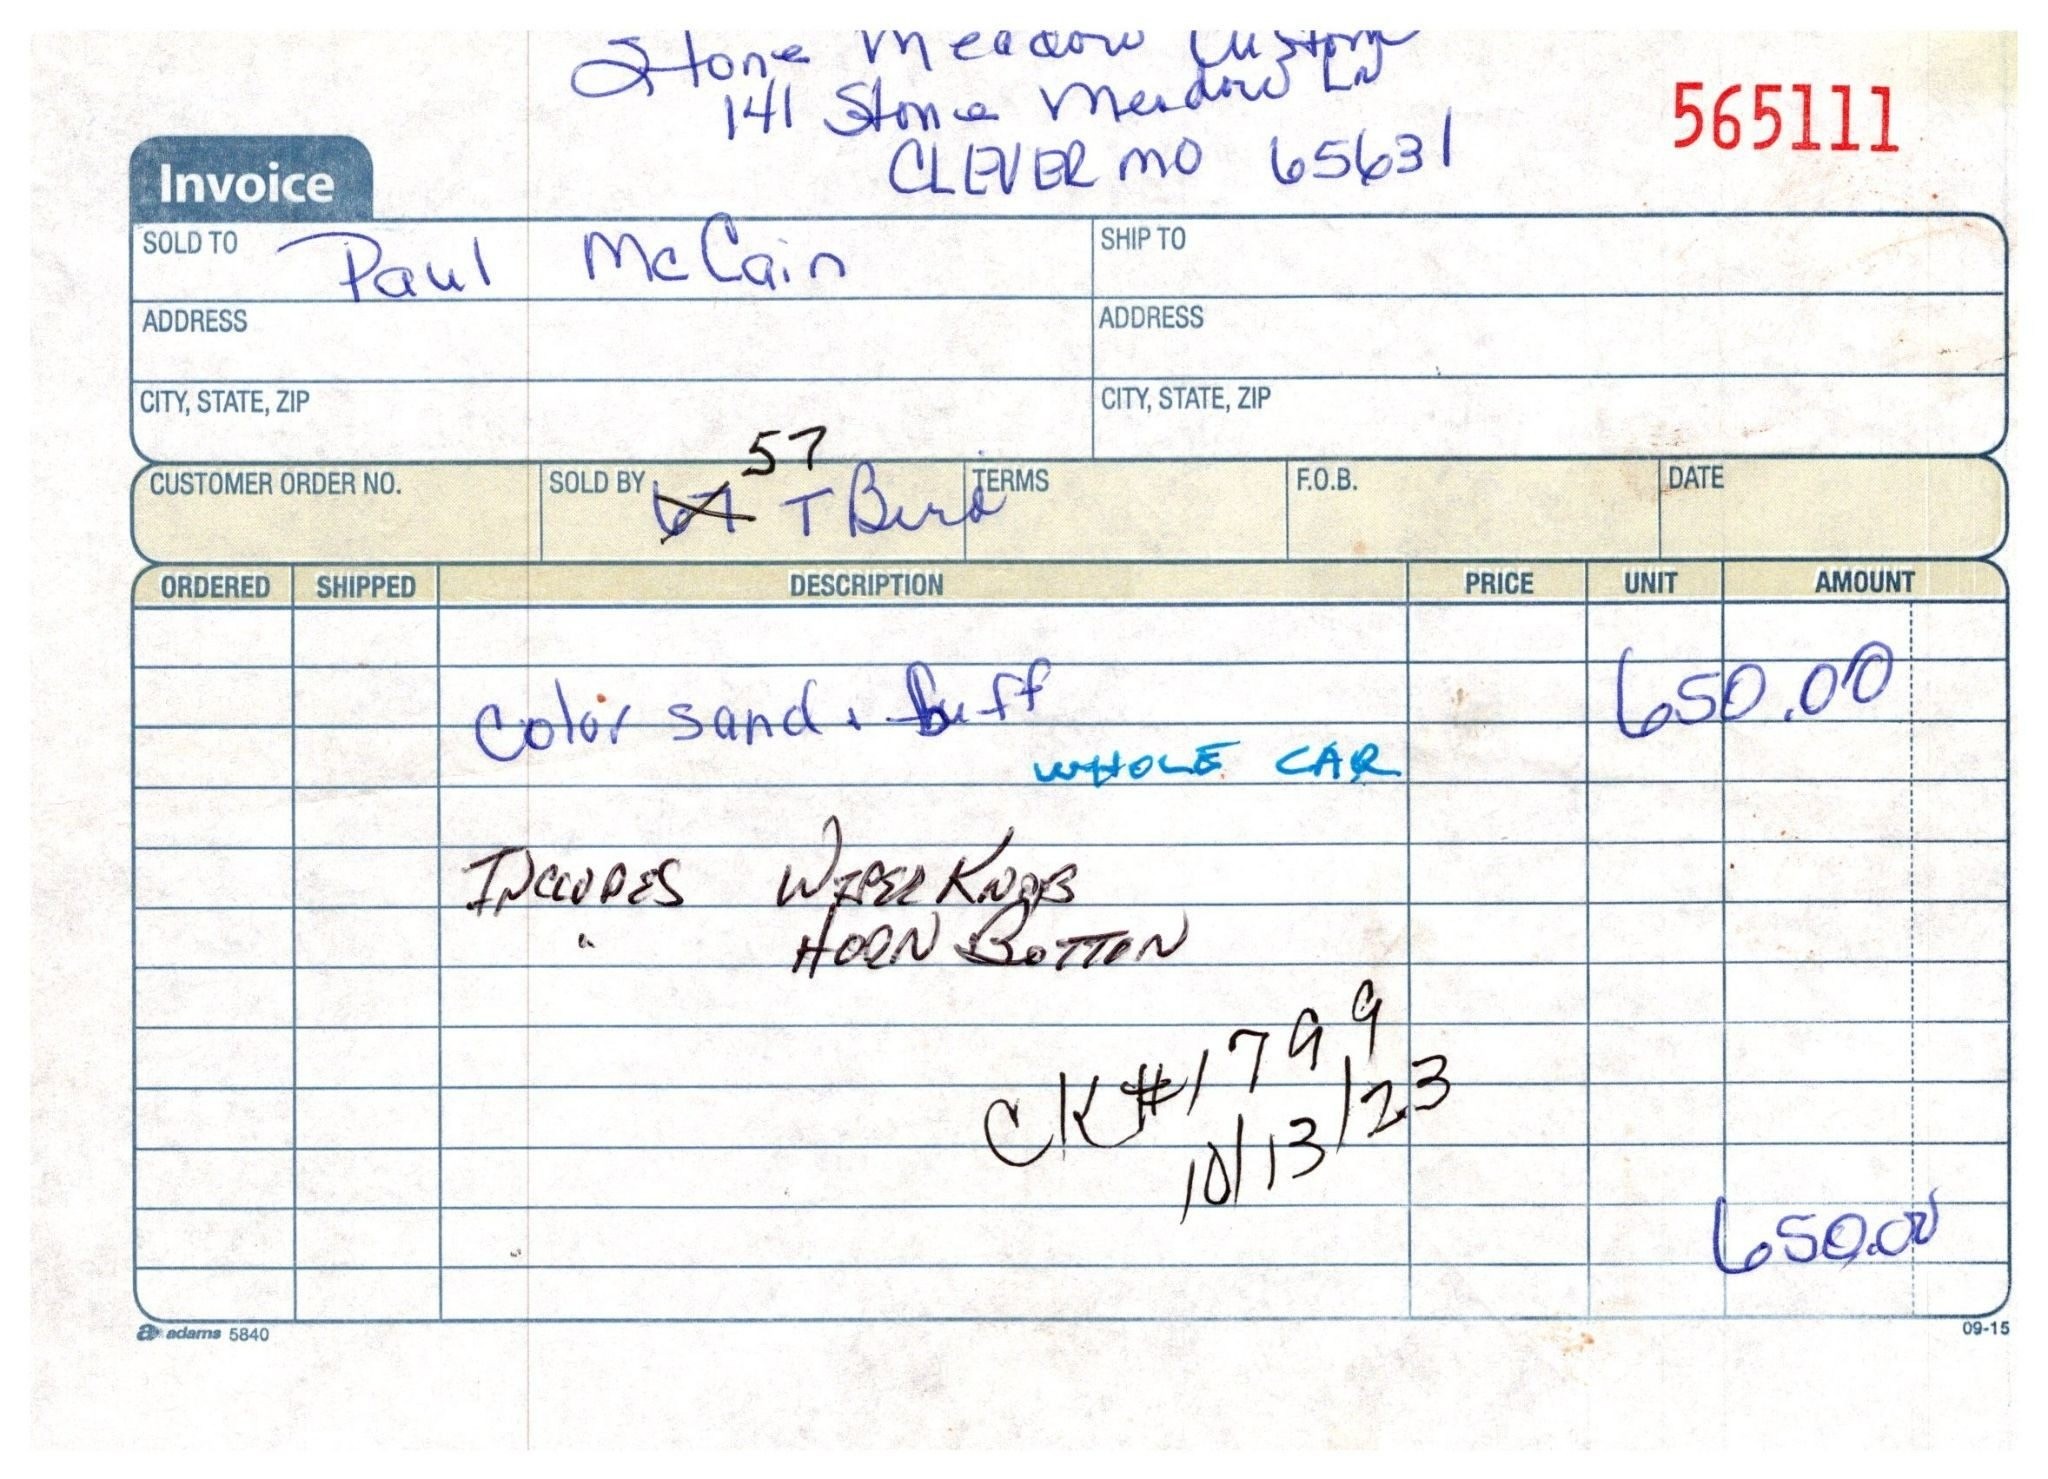 Stone Meadow Custom
141 Stone Meadow Ln
CLEVER MO 65631
565111
Invoice
SOLD TO Paul McCain
SHIP TO
ADDRESS
ADDRESS
CITY, STATE, ZIP
CITY, STATE, ZIP
57
CUSTOMER ORDER NO. SOLD BY T Bird TERMS F.O.B. DATE
ORDERED SHIPPED DESCRIPTION PRICE UNIT AMOUNT
Color sand & buff 650.00
WHOLE CAR
INCLUDES WIPER KNOB
" HORN BOTTON
CK#1799
10/13/23
650.00
adams 5840
09-15